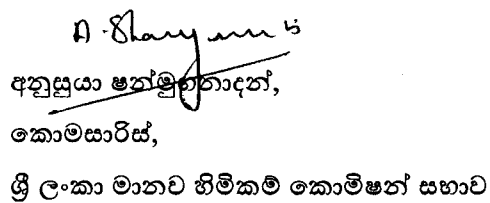 අනුසුයා ෂන්මුගනාදන්,
කොමසාරිස්,
ශ්‍රී ලංකා මානව හිමිකම් කොමිෂන් සභාව